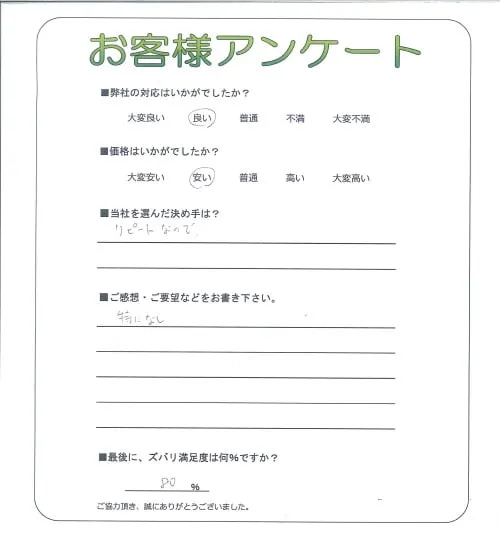 お客様アンケート
■弊社の対応はいかがでしたか？
大変良い 良い 普通 不満 大変不満
■価格はいかがでしたか？
大変安い 安い 普通 高い 大変高い
■当社を選んだ決め手は？
リピートなので、
■ご感想・ご要望などをお書き下さい。
特になし
■最後に、ズバリ満足度は何％ですか？
80 ％
ご協力頂き、誠にありがとうございました。